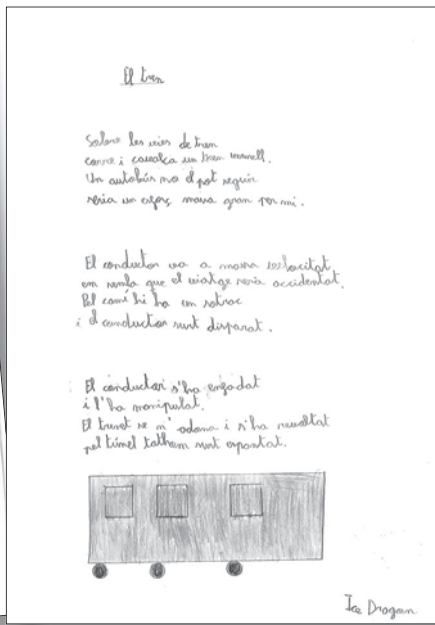 El tren
Sobre les vies de tren
corre i cavalca un tren vermell.
Un autobús no el pot seguir
seria un esforç massa gran per mi.
El conductor va a massa velocitat
em sembla que el viatge serà accidentat.
Pel camí hi ha un sotrac
i el conductor surt disparat.
El conductor s'ha enfadat
i l'ha manipulat.
El trenet se n'adona i s'ha revoltat
pel túnel tothom surt espantat.
Ice Dragon